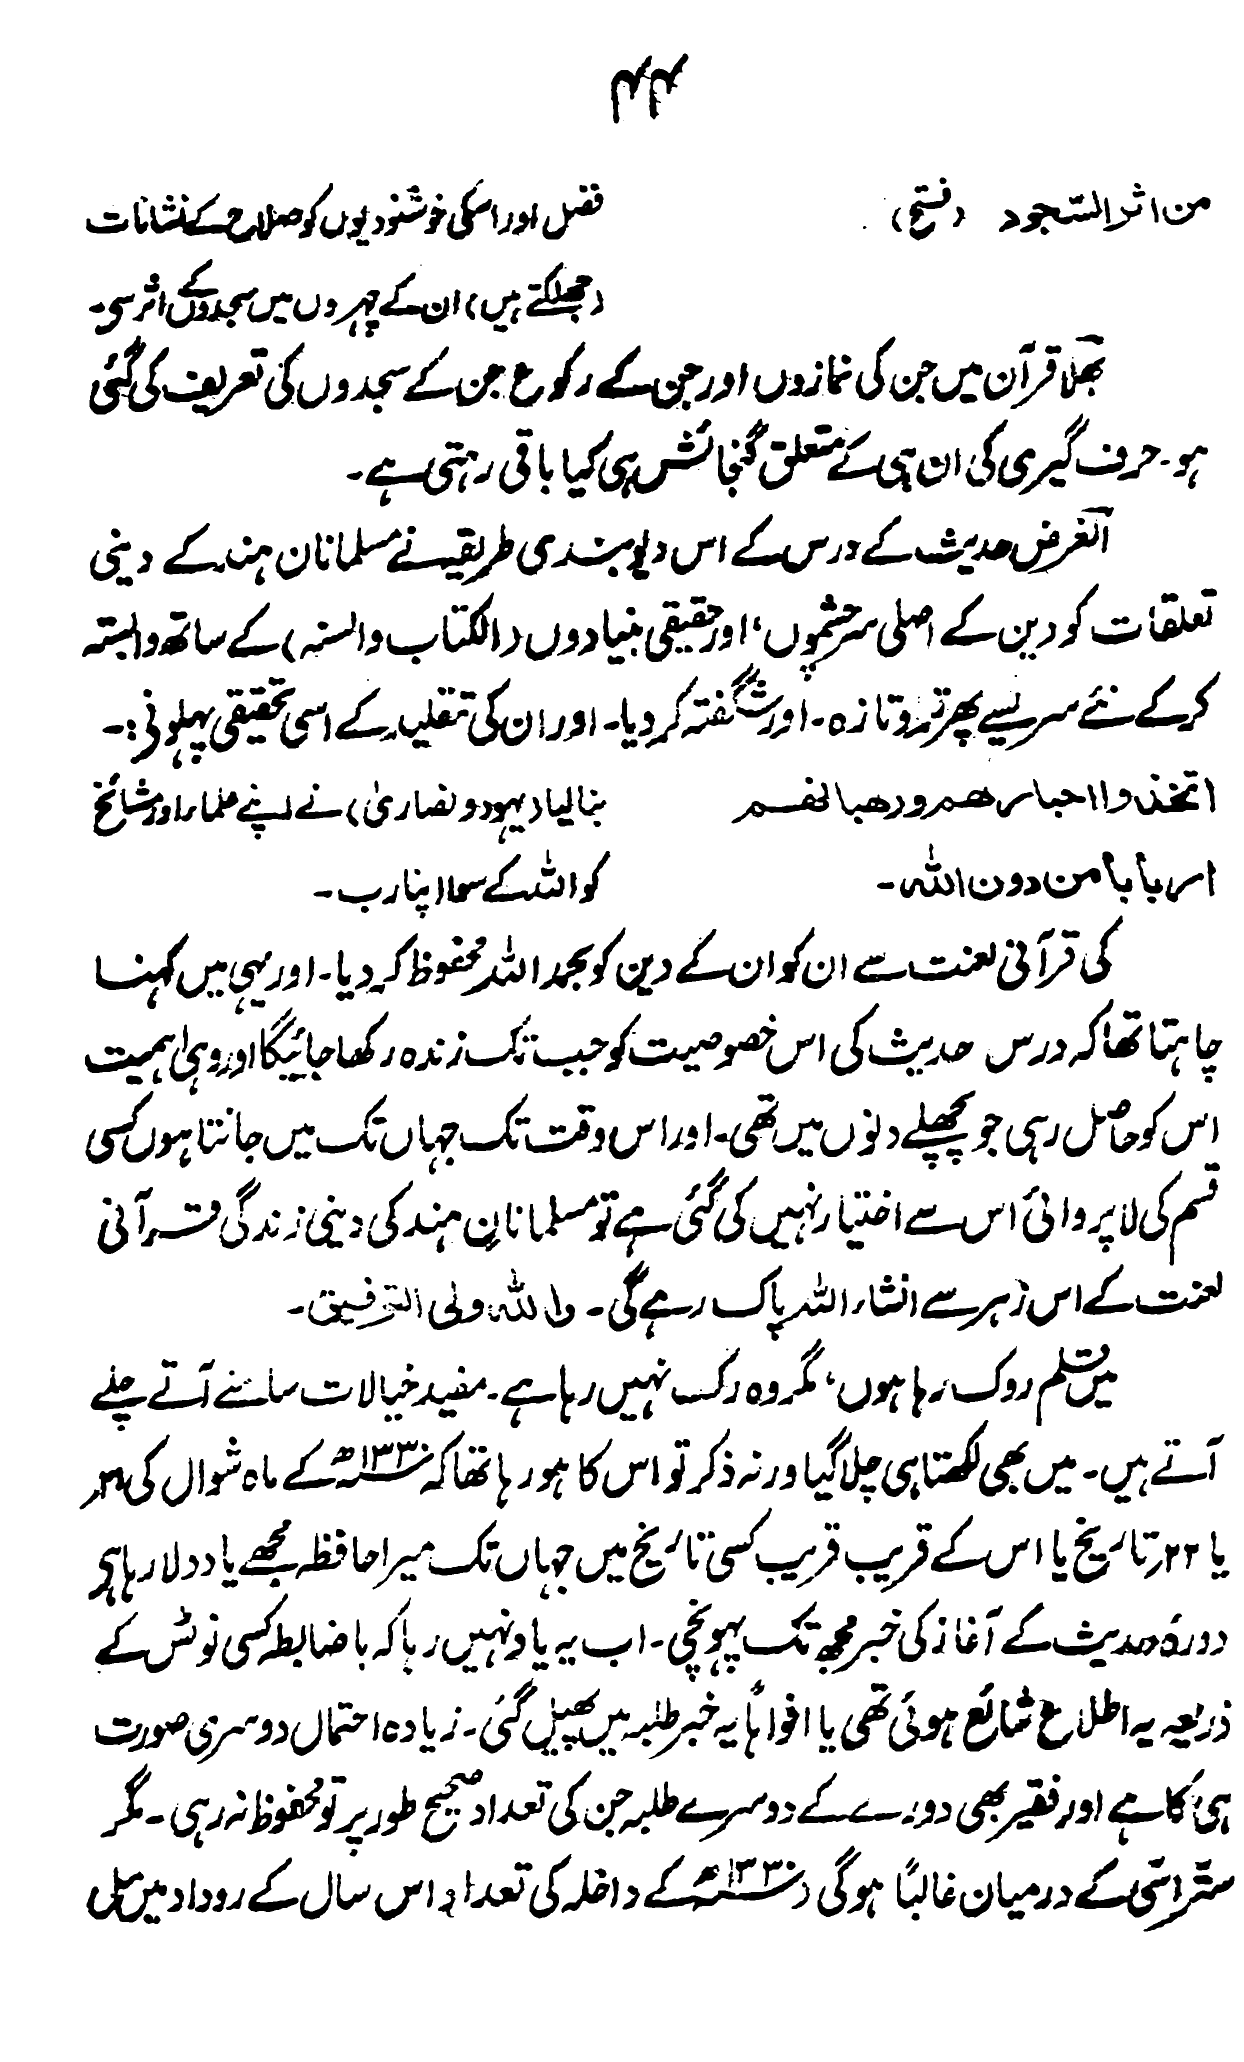 من اثر السّجود (فتح) فضل اور اسکی خوشنودیوں کو صلاح کے نشانات
(جھلکتے ہیں) ان کے چہروں میں سجدوں کے اثر سی۔
بھلا قرآن میں جن کی نمازوں اور جن کے رکوع جن کے سجدوں کی تعریف کی گئی
ہو۔ حرف گیری کی ان ہی کے متعلق گنجائش ہی کیا باقی رہتی ہے۔
الغرض حدیث کے درس کے اس دیوبندی طریقہ نے مسلمانان ہند کے دینی
تعلقات کو دین کے اصلی سرچشموں، اور حقیقی بنیادوں (الکتاب والسنہ) کے ساتھ وابستہ
کر کے نئے سر یسے پھر تر و تازہ۔ اور شگفتہ کر دیا۔ اور ان کی تقلید کے اسی تحقیقی پہلو نی:۔
اتخذوا احبارهم ورهبانهم بنا لیا (یہود و نصاریٰ) نے اپنے علماء اور مشائخ
اربابا من دون الله۔ کو اللہ کے سوا اپنا رب۔
کی قرآنی لعنت سے ان کو ان کے دین کو بحمد اللہ محفوظ کر دیا۔ اور یہی میں کہنا
چاہتا تھا کہ درس حدیث کی اس خصوصیت کو جب تک زندہ رکھا جائیگا اور وہی اہمیت
اس کو حاصل رہی جو پچھلے دنوں میں تھی۔ اور اس وقت تک جہاں تک میں جانتا ہوں کسی
قسم کی لا پروائی اس سے اختیار نہیں کی گئی ہے تو مسلمانانِ ہند کی دینی زندگی قرآنی
لعنت کے اس زہر سے انشاء اللہ پاک رہے گی۔ واللہ ولی التوفیق۔
میں قلم روک رہا ہوں، مگر وہ رک نہیں رہا ہے۔ مفید خیالات سامنے آتے چلے
آتے ہیں۔ میں بھی لکھتا ہی چلا گیا ورنہ ذکر تو اس کا ہو رہا تھا کہ ۱۳۳۰ھ کے ماہ شوال کی ۲۱ر
یا ۲۲ر تاریخ یا اس کے قریب قریب کسی تاریخ میں جہاں تک میرا حافظہ مجھے یاد دلا رہا ہی
دورۂ حدیث کے آغاز کی خبر مجھ تک پہونچی۔ اب یہ یاد نہیں رہا کہ باضابطہ کسی نوٹس کے
ذریعہ یہ اطلاع شائع ہوئی تھی یا افواہاً یہ خبر طلبہ میں پھیل گئی۔ زیادہ احتمال دوسری صورت
ہی کا ہے اور فقیر بھی دورے کے دوسرے طلبہ جن کی تعداد صحیح طور پر تو محفوظ نہ رہی۔ مگر
ستّر اسّی کے درمیان غالباً ہوگی (۱۳۳۰ھ کے داخلہ کی تعداد اس سال کے روداد میں ملی